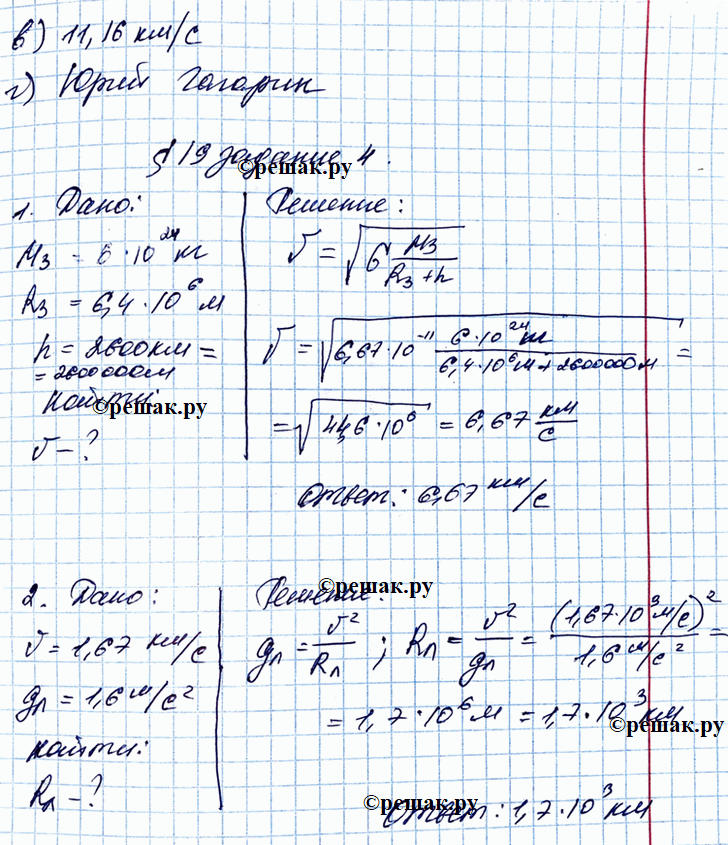 в) 11,16 км/с
г) Юрий Гагарин
§ 19 задание 4.
©решак.ру
1. Дано:
M₃ = 6·10²⁴ кг
R₃ = 6,4·10⁶ м
h = 2600 км =
= 2600000 м
Найти:
©решак.ру
v - ?
Решение:
v = √(G M₃/(R₃ + h))
v = √(6,67·10⁻¹¹ (6·10²⁴ кг)/(6,4·10⁶ м + 2600000 м)) =
= √(44,6·10⁶) = 6,67 км/с
Ответ: 6,67 км/с
2. Дано:
v = 1,67 км/с
gл = 1,6 м/с²
Найти:
Rл - ?
Решение:
©решак.ру
gл = v²/Rл ; Rл = v²/gл = (1,67·10³ м/с)²/(1,6 м/с²) =
= 1,7·10⁶ м = 1,7·10³ км
©решак.ру
Ответ: 1,7·10³ км
©решак.ру